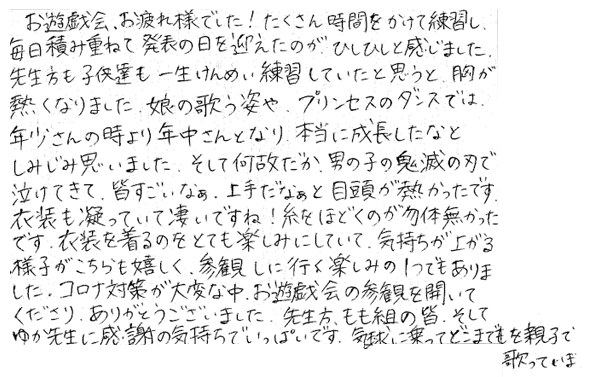 お遊戯会、お疲れ様でした！たくさん時間をかけて練習し、
毎日積み重ねて発表の日を迎えたのが、ひしひしと感じました。
先生方も子供達も一生けんめい練習していたと思うと、胸が
熱くなりました。娘の歌う姿や、プリンセスのダンスでは、
年少さんの時より年中さんとなり、本当に成長したなと
しみじみ思いました。そして何故だか、男の子の鬼滅の刃で
泣けてきて、皆すごいなぁ、上手だなぁと目頭が熱かったです。
衣装も凝っていて凄いですね！糸をほどくのが勿体無かった
です。衣装を着るのをとても楽しみにしていて、気持ちが上がる
様子がこちらも嬉しく、参観しに行く楽しみの1つでもありま
した。コロナ対策が大変な中、お遊戯会の参観を開いて
くださり、ありがとうございました。先生方、もも組の皆、そして
ゆか先生に感謝の気持ちでいっぱいです。気球に乗ってどこまでもを親子で
歌っていま